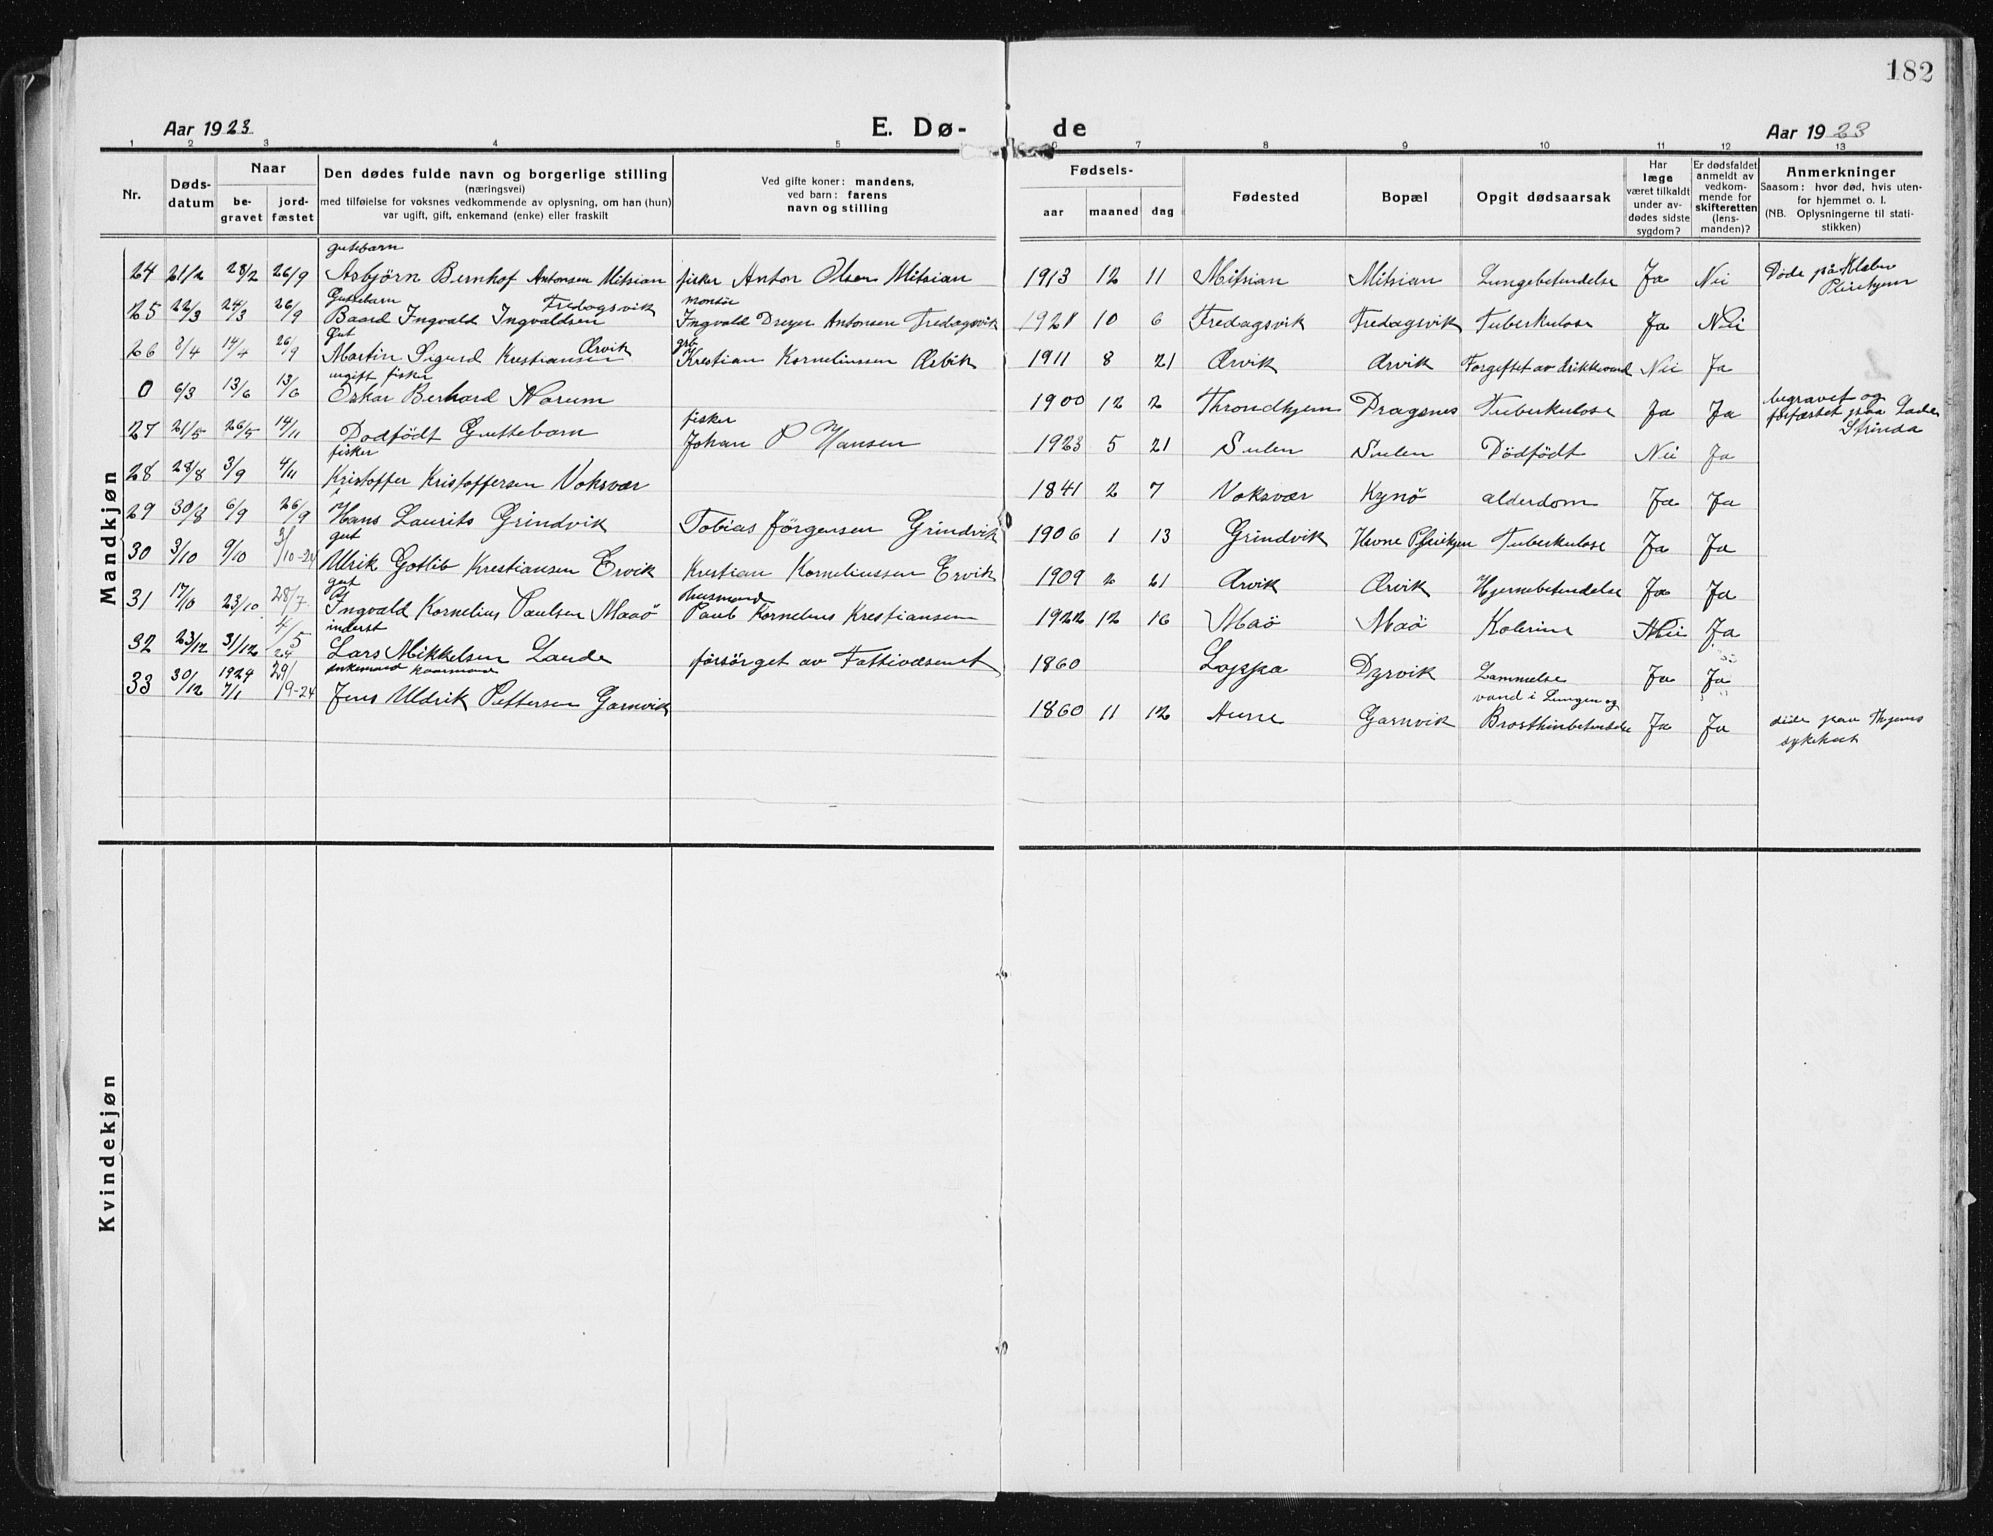 182
Aar 1923 E. Dø- de Aar 1923
1 2 3 4 5 6 7 8 9 10 11 12 13
Nr. Døds-datum Naar be-gravet jord-fæstet Den dødes fulde navn og borgerlige stilling (næringsvei) med tilføielse for voksnes vedkommende av oplysning, om han (hun) var ugift, gift, enkemand (enke) eller fraskilt Ved gifte koner: mandens, ved barn: farens navn og stilling Fødsels- aar maaned dag Fødested Bopæl Opgit dødsaarsak Har læge været tilkaldt under av-dødes sidste sygdom? Er dødsfaldet anmeldt av vedkom-mende for skifteretten (lens-manden)? Anmerkninger Saasom: hvor død, hvis uten-for hjemmet o. l. (NB. Oplysningerne til stati-stikken)
Mandkjøn
24 21/2 28/2 26/9 guttebarn Asbjörn Bernhof Antonsen Mitsian fisker Anton Olsen Mitsian 1913 12 11 Mitsian Mitsian Lungebetendelse Ja Nei Döde på Klæbu Pleiehjem
25 22/3 24/3 26/9 Guttebarn Baard Ingvald Ingvaldsen Fredagsvik montör Ingvald Dreyer Antonsen Fredagsvik 1921 10 6 Fredagsvik Fredagsvik Tuberkulose Ja Nei
26 8/4 14/4 26/9 gut Martin Sigurd Krestiansen Ærvik grb. Krestian Korneliussen Ærvik 1911 8 21 Ærvik Ærvik Forgiftet av drikkevand Nei Ja
0 6/3 13/6 13/6 ugift fisker Oskar Berhard Norum 1900 12 2 Throndhjem Dragsnes Tuberkulose Ja Ja begravet og jordfæstet paa Lade Strinda
27 21/5 26/5 14/11 Dodfödt Guttebarn fisker Johan P Hansen 1923 5 21 Sulen Sulen Dödfödt Nei Ja
28 28/8 3/9 4/11 fisker Kristoffer Kristoffersen Voksvær 1841 2 7 Voksvær Kynö alderdom Ja Ja
29 30/8 6/9 26/9 Hans Laurits Grindvik Tobias Jörgensen Grindvik 1906 1 13 Grindvik Hevne Pleiehjem Tuberkulose Ja Ja
30 3/10 9/10 3/10-24 gut Ulrik Gotlib Krestiansen Ervik Krestian Korneliussen Ervik 1909 2 21 Ærvik Ærvik Hjernebetendelse Ja Ja
31 17/10 23/10 28/7 gut Ingvald Kornelius Paulsen Maaö Husmand Paul Kornelius Krestiansen 1922 12 16 Maö Maö Kolerine Nei Ja
32 23/12 31/12 4/5 24 inderst Lars Mikkelsen Lande försörget av Fattivæsenet 1860 Loppa Dyrvik Lammelse Ja Ja
33 30/12 1924 7/1 29/9-24 enkemand kaarmand Jens Uldrik Pettersen Garnvik 1860 11 12 Hevne Garnvik vand i Lungen og Brosthinbetendelse Ja Ja döde paa Thjems sykehus
Kvindekjøn